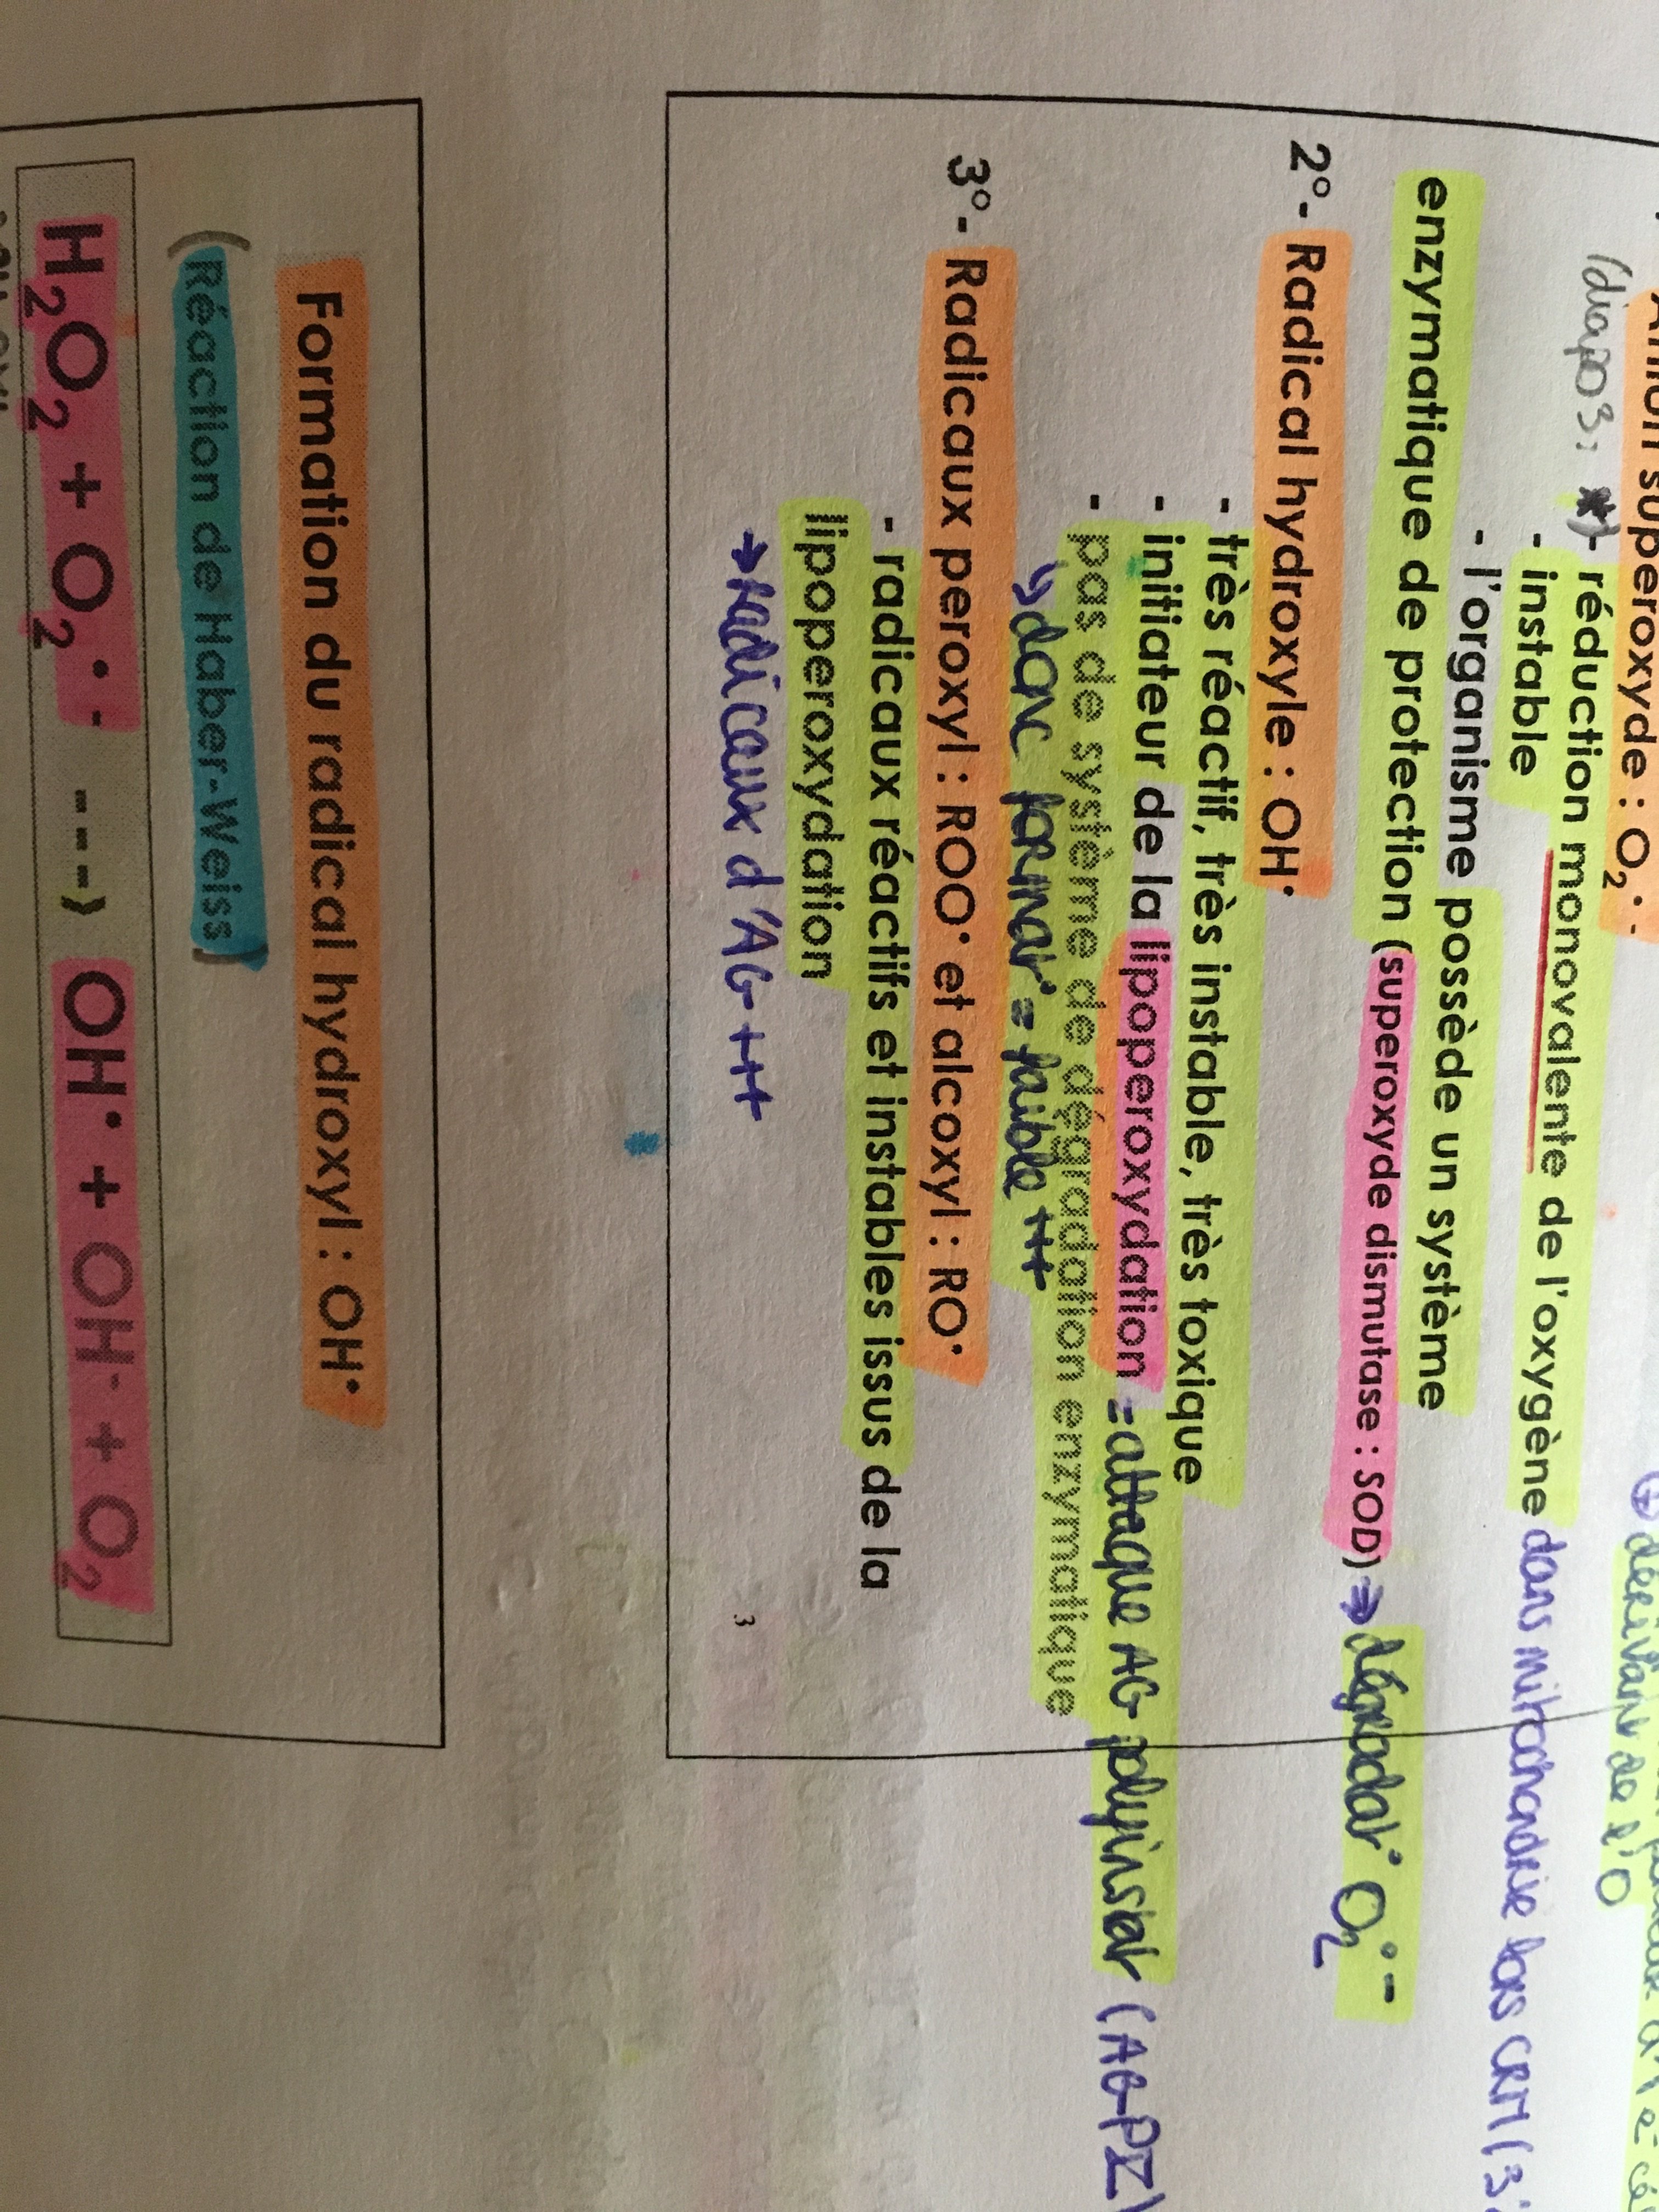 ⊕ dérivant de l'O
superoxyde : O₂•-
(diapo 3: *) - réduction monovalente de l'oxygène dans mitochondrie lors CRM (3:
- instable
- l'organisme possède un système
enzymatique de protection (superoxyde dismutase : SOD) → dégradat° O₂•-
2°- Radical hydroxyle : OH•
- très réactif, très instable, très toxique
- initiateur de la lipoperoxydation = attaque AG polyinstat (AG-PI)
- pas de système de dégradation enzymatique
↳ donc format° = faible +++
3°- Radicaux peroxyl : ROO• et alcoxyl : RO•
- radicaux réactifs et instables issus de la
lipoperoxydation
→ radicaux d'AG +++
3
Formation du radical hydroxyl : OH•
(Réaction de Haber-Weiss)
H₂O₂ + O₂•- ---> OH• + OH- + O₂